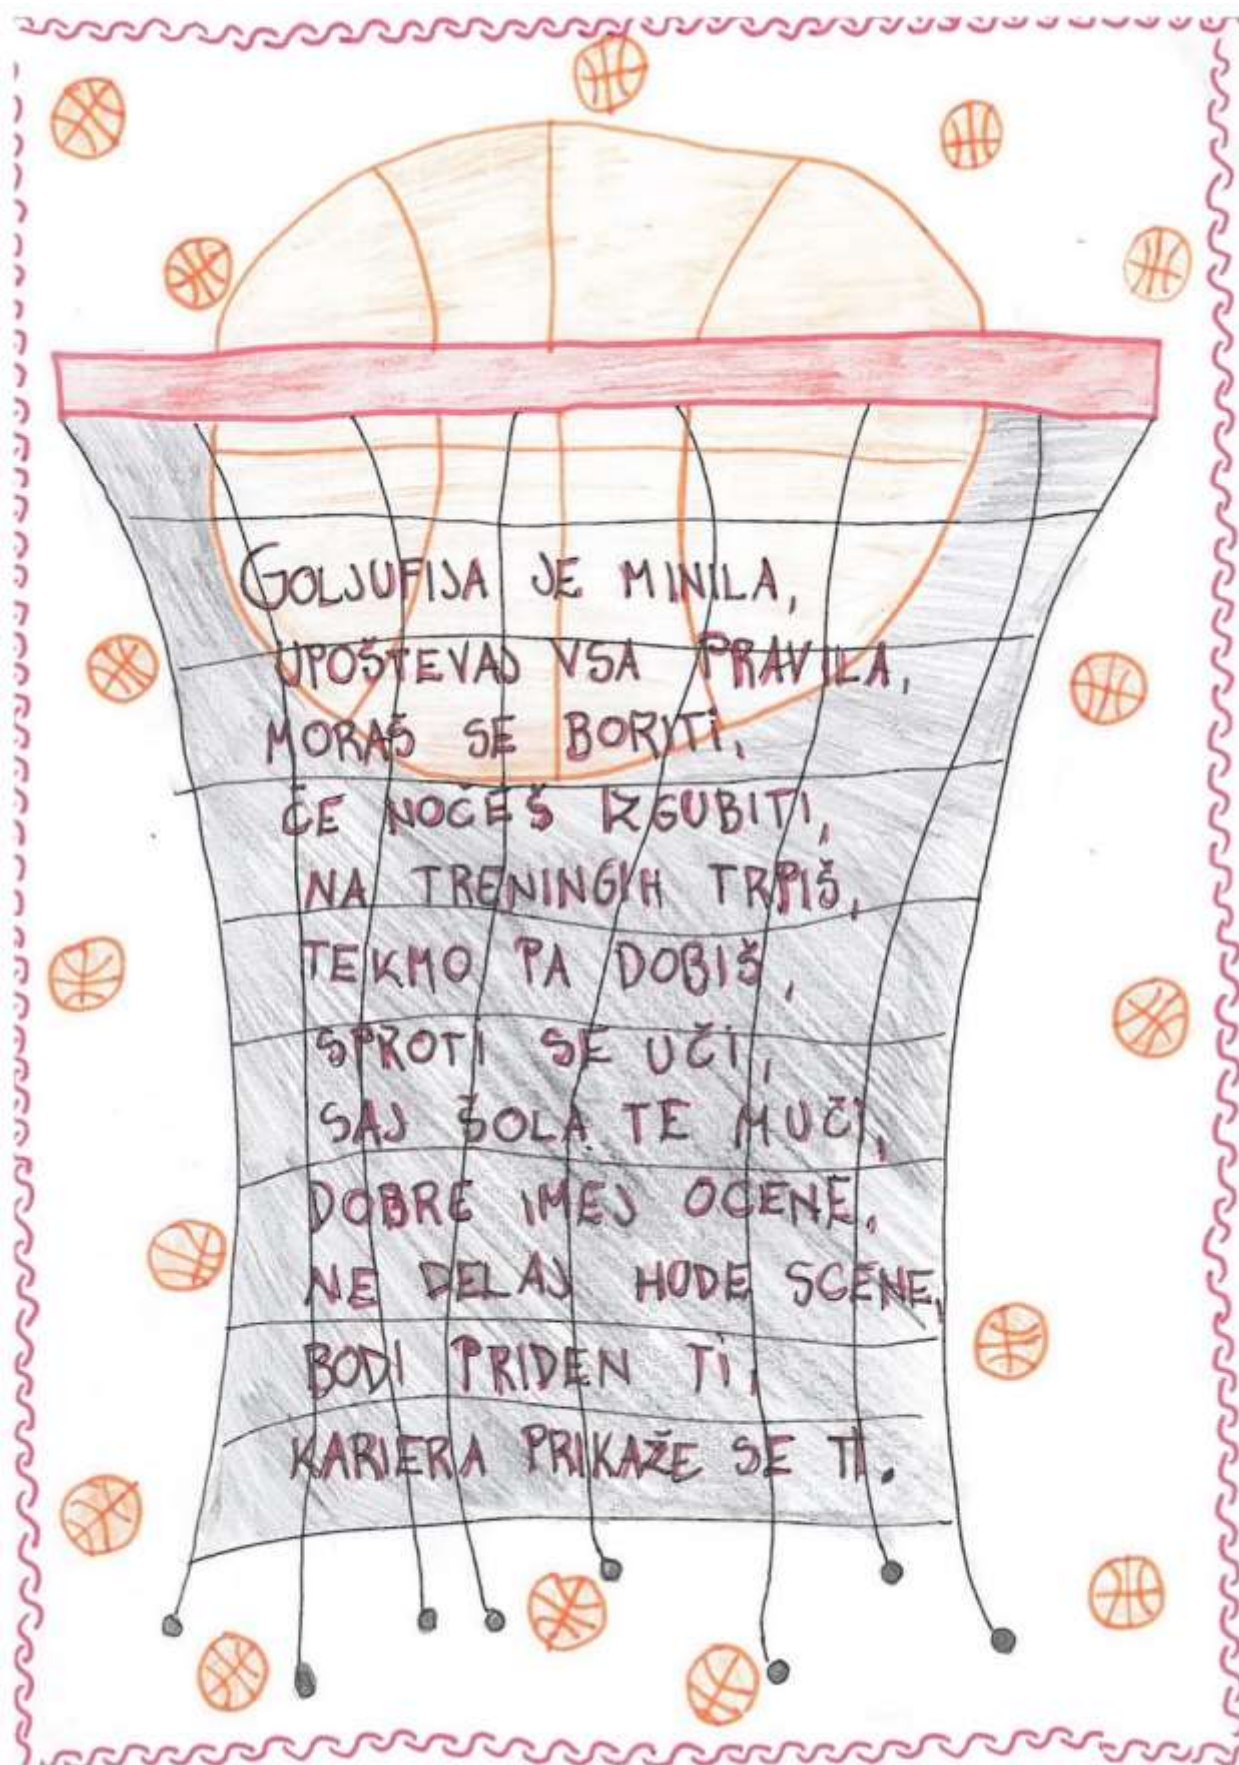 GOLJUFIJA JE MINILA,
UPOŠTEVAJ VSA PRAVILA,
MORAŠ SE BORITI,
ČE NOČEŠ IZGUBITI,
NA TRENINGIH TRPIŠ,
TEKMO PA DOBIŠ,
SPROTI SE UČI,
SAJ ŠOLA TE MUČI,
DOBRE IMEJ OCENE,
NE DELAJ HUDE SCENE,
BODI PRIDEN TI,
KARIERA PRIKAŽE SE TI.